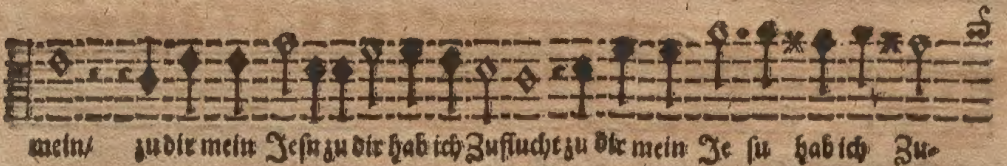 mein/ zu dir mein Jesu zu dir hab ich Zuflucht zu dir mein Je su hab ich Zu-